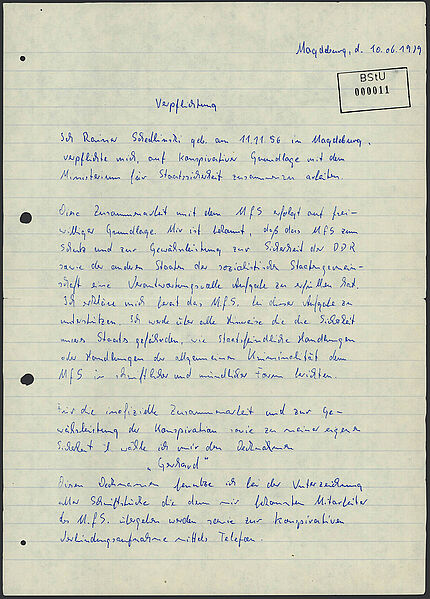 Magdeburg, d. 10.06.1979
BStU
000011
Verpflichtung
Ich Rainer Schedlinski geb. am 11.11.56 in Magdeburg,
verpflichte mich, auf konspirativer Grundlage mit dem
Ministerium für Staatssicherheit zusammenzu arbeiten.
Diese Zusammenarbeit mit dem MfS erfolgt auf frei-
williger Grundlage. Mir ist bekannt, daß das MfS zum
Schutz und zur Gewährleistung zur Sicherheit der DDR
sowie der anderen Staaten der sozialistischen Staatengemein-
schaft eine Verantwortungsvolle Aufgabe zu erfüllen hat.
Ich erkläre mich bereit das M.f.S. bei dieser Aufgabe zu
unterstützen. Ich werde über alle Hinweise die die Sicherheit
unseres Staats gefährden, wie Staatsfeindliche Handlungen
oder Handlungen der allgemeinen Kriminalität dem
MfS in schriftlicher und mündlicher Form berichten.
Für die inofizielle Zusammenarbeit und zur Ge-
währleistung der Konspiration sowie zu meiner eigenen
Sicherheit wähle ich mir den Decknamen
„Gerhard"
Diesen Decknamen benutze ich bei der Unterzeichnung
aller Schriftstücke die dem mir bekannten Mitarbeiter
des M.f.S. übergeben werden sowie zur konspirativen
Verbindungsaufnahme mittels Telefon.